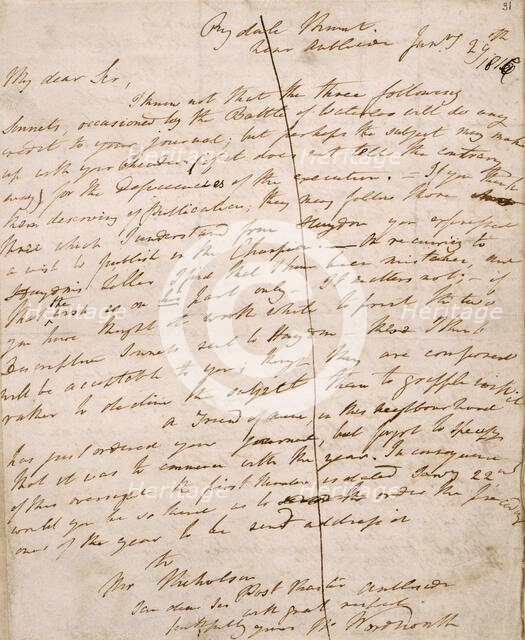 31
Rydale Mount.
near Ambleside Janry 29th
1816
My dear Sir,
I know not that the three following
Sonnets, occasioned by the Battle of Waterloo will do any
credit to your journal, but perhaps the subject may make
up with your (if it does not take the contrary
way) for the Deficiencies of the execution. — If you think
them deserving of Publication, they may follow those
which I understand from Haydon you expressed
a wish to publish in the Champion. — On recurring to
Haydon's letter I find that I have been mistaken, and
that the wish is on his part only; it matters not: if
you have thought it worth while to print the two
Sonnets sent to Haydon, these I think
will be acceptable to you; though they are composed
rather to decline the subject than to grapple with it
A Friend of mine in this neighbourhood
has just ordered your Journal, but forgot to specify
that it was to commence with the year. In consequence
of this oversight the first Number Janry 22nd
would you be so kind as to the preceding
ones of the year to be sent addressed
to
Mr Nicholson
Post Master Ambleside
I am dear Sir with great respect
faithfully yours Wm Wordsworth
Heritage
Heritage
Heritage
Heritage
Heritage
Heritage